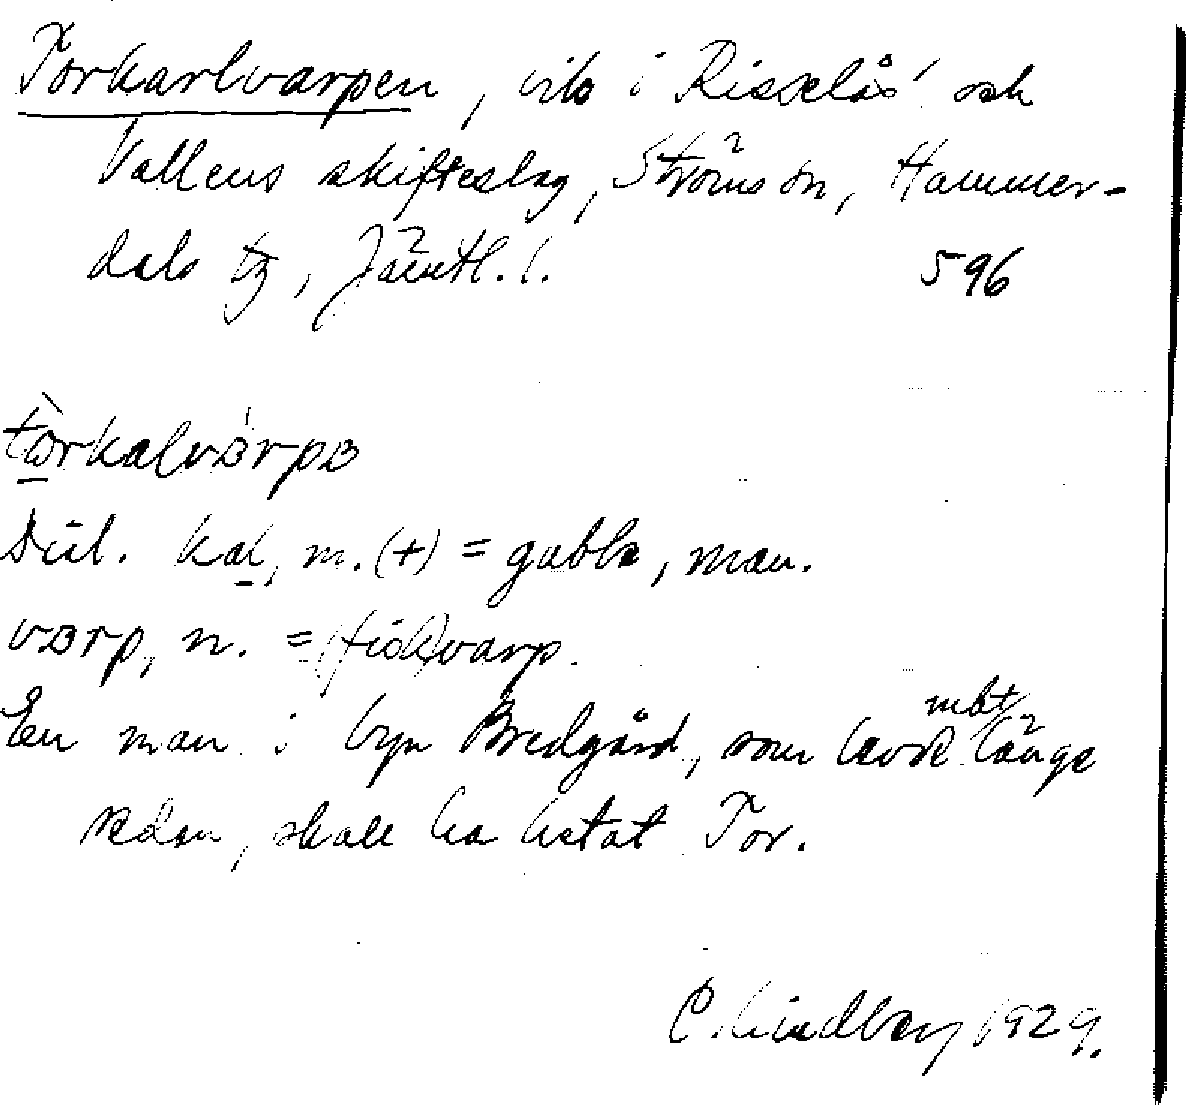 Torkarlvarpen, vik i Risselås och
Vallens skifteslag, Ströms sn, Hammer-
dals tg, Jämtl. l. 596
tòrkalvárpa
Dial. kal, m. (+) = gubbe, man.
varp, n. = (fisk)varp.
En man i byn Bredgård, som levde mkt länge
sedan, skall ha hetat Tor.
C. Lindberg 1929.